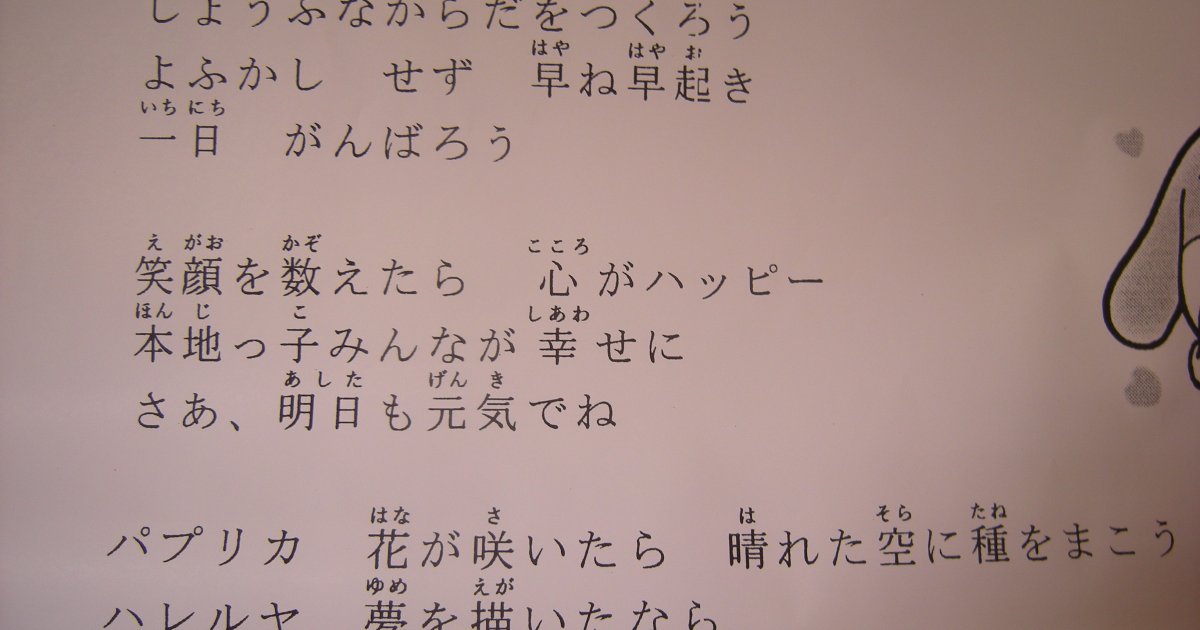 じょうぶなからだをつくろう
よふかし　せず　早ね早起き
一日　がんばろう
笑顔を数えたら　心がハッピー
本地っ子みんなが幸せに
さあ、明日も元気でね
パプリカ　花が咲いたら　晴れた空に種をまこう
ハレルヤ　夢を描いたなら